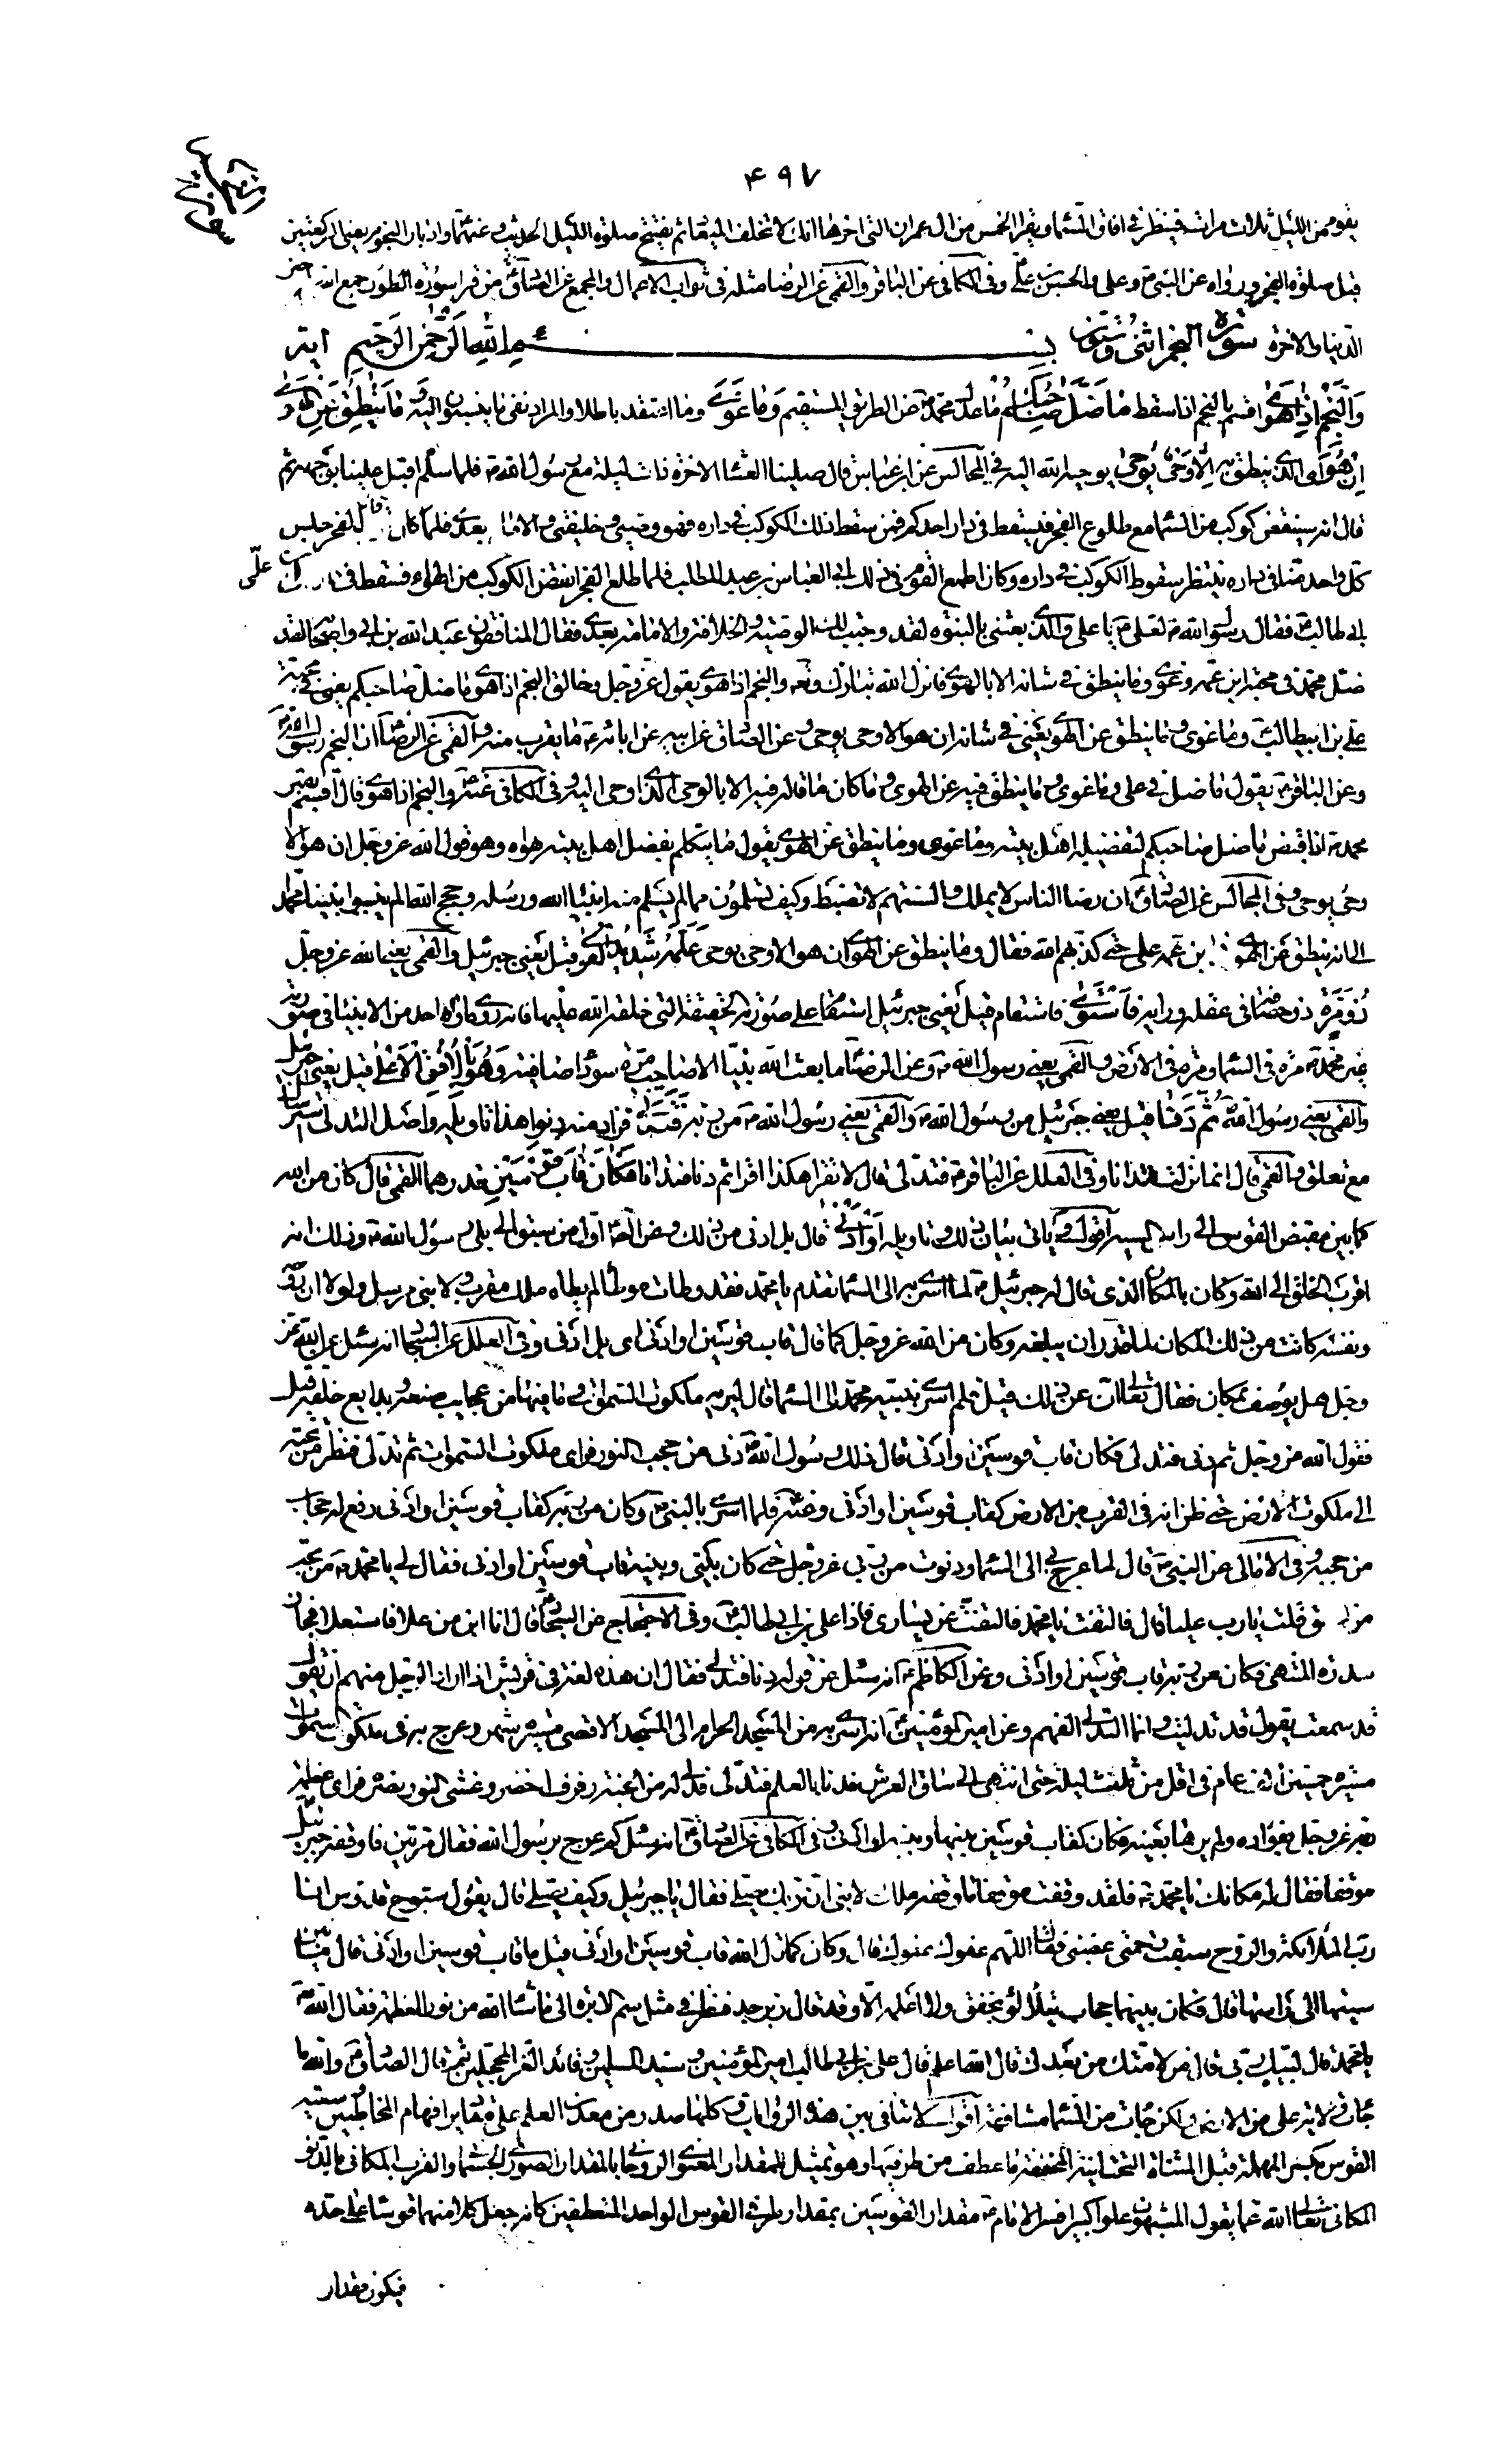 ۴۹۷
يقوم من الليل ثلاث مرات فينظر في افاق السماء ويقرأ الخمس من آل عمران التي اخرها انك لا تخلف الميعاد ثم يفتتح صلوة الليل الحديث وعنهما وادبار النجوم يعني الركعتين
قبل صلوة الفجر ورواه عن النبي وعلي والحسن وفي الكافي عن الباقر والقمي عن الرضا مثله في ثواب الاعمال والمجمع عن الصادق من قرأ سورة الطور جمع الله خير
الدنيا والاخرة سورة النجم اثنى وستون بسم الله الرحمن الرحيم اية
والنجم اذا هوى اقسم بالنجم اذا سقط ما ضل صاحبكم ما عدل محمد عن الطريق المستقيم وما غوى وما اعتقد باطلا والمراد نفي ما ينسبون اليه وما ينطق عن الهوى
ان هو اي الذي ينطق به الا وحي يوحى يوحيه الله اليه في المجالس عن ابن عباس قال صلينا العشاء الاخرة ذات ليلة مع رسول الله فلما سلم اقبل علينا بوجهه ثم
قال انه سينقض كوكب من السماء مع طلوع الفجر فيسقط في دار احدكم فمن سقط ذلك الكوكب في داره فهو وصيي وخليفتي والامام بعدي فلما كان الفجر جلس
كل واحد منا في داره ينتظر سقوط الكوكب في داره وكان اطمع القوم في ذلك ابي العباس بن عبد المطلب فلما طلع الفجر انقض الكوكب من الهواء فسقط في علي
ابي طالب فقال رسول الله لعلي يا علي والذي بعثني بالنبوة لقد وجبت لك الوصية والخلافة والامامة بعدي فقال المنافقون عبد الله بن ابي واصحابه لقد
ضل محمد في محبة ابن عمه وغوى وما ينطق في شانه الا بالهوى فانزل الله تبارك وتعالى والنجم اذا هوى يقول عز وجل وخالق النجم اذا هوى ما ضل صاحبكم يعني في محبة
علي بن ابيطالب وما غوى وما ينطق عن الهوى يعني في شانه ان هو الا وحي يوحى وعن الصادق عن ابيه عن ابائه ما يقرب منه والقمي عن الرضا ان النجم رسول الله
وعن الباقر يقول ما ضل في علي وما غوى وما ينطق فيه عن الهوى وما كان ما قاله فيه الا بالوحي الذي اوحي اليه وفي الكافي عنه والنجم اذا هوى قال اقسم بقبر
محمد اذا قبض ما ضل صاحبكم لتفضيله اهل بيته وما غوى وما ينطق عن الهوى يقول ما يتكلم بفضل اهل بيته بهواه وهو قول الله عز وجل ان هو الا
وحي يوحى وفي المجالس عن الصادق ان رضا الناس لا يملك والسنتهم لا تضبط وكيف تسلمون مما لم يسلم منه انبياء الله ورسله وحجج الله الم ينسبوا نبينا محمد
الى انه ينطق عن الهوى ابن عمه علي حتى كذبهم الله فقال وما ينطق عن الهوى ان هو الا وحي يوحى علمه شديد القوى قيل يعني جبرئيل والقمي يعني الله عز وجل
ذو مرة ذو حصافة في عقله ورايه فاستوى فاستقام قيل يعني جبرئيل استقام على صورته الحقيقية التي خلقه الله عليها فانه روي ما رآه احد من الانبياء في صورته
غير محمد مرة في السماء ومرة في الارض والقمي يعني رسول الله وعن الرضا ما بعث الله نبيا الا صاحب مرة سوداء صافية وهو بالافق الاعلى قيل يعني جبرئيل
والقمي يعني رسول الله ثم دنى قيل يعني جبرئيل من رسول الله والقمي يعني رسول الله من ربه فتدلى فزاد منه دنوا هذا تاويله واصل التدلي استرسال
مع تعلق والقمي قال انما نزلت فتدانا وفي العلل عن الباقر فتدلى قال لا تقرأ هكذا اقرأ ثم دنا فتدانا فكان قاب قوسين قدرهما القمي قال كان من الله
كما بين مقبض القوس الى راس السية اقول وياتي بيان ذلك وتاويله او ادنى قال بل ادنى من ذلك وعن الصادق اول من سبق الى بلى رسول الله وذلك انه
اقرب الخلق الى الله وكان بالمكان الذي قال له جبرئيل لما اسري به الى السماء تقدم يا محمد فقد وطأت موطأ لم يطأه ملك مقرب ولا نبي مرسل ولولا ان روحه
ونفسه كانت من ذلك المكان لما قدر ان يبلغه وكان من الله عز وجل كما قال قاب قوسين او ادنى اي بل ادنى وفي العلل عن السجاد انه سئل عن الله عز
وجل هل يوصف بمكان فقال تعالى الله عن ذلك قيل فلم اسرى بنبيه محمد الى السماء قال ليريه ملكوت السموات وما فيها من عجايب صنعه وبدايع خلقه قيل
فقول الله عز وجل ثم دنى فتدلى فكان قاب قوسين او ادنى قال ذلك رسول الله دنى من حجب النور فراى ملكوت السموات ثم تدلى فنظر من تحته
الى ملكوت الارض حتى ظن انه في القرب من الارض كقاب قوسين او ادنى وعنه فلما اسري بالنبي وكان من ربه كقاب قوسين او ادنى رفع له حجاب
من حجبه وفي الامالي عن النبي قال لما عرج بي الى السماء ودنوت من ربي عز وجل حتى كان بيني وبينه قاب قوسين او ادنى فقال لي يا محمد من تحب
من الخلق قلت يا رب عليا قال فالتفت يا محمد فالتفت عن يساري فاذا علي بن ابي طالب وفي الاحتجاج عن السجاد قال انا ابن من علا فاستعلا فجاز
سدرة المنتهى فكان من ربه قاب قوسين او ادنى وعن الكاظم انه سئل عن قوله دنا فتدلى فقال ان هذه لغة في قريش اذا اراد الرجل منهم ان يقول
قد سمعت يقول قد تدليت وانما التدلي الفهم وعن امير المؤمنين انه اسري به من المسجد الحرام الى المسجد الاقصى مسيرة شهر وعرج به في ملكوت السموات
مسيرة خمسين الف عام في اقل من ثلث ليلة حتى انتهى الى ساق العرش فدنا بالعلم فتدلى فدلي له من الجنة رفرف اخضر وغشي النور بصره فراى عظمة
ربه عز وجل بفؤاده ولم يرها بعينه فكان كقاب قوسين بينها وبينه او ادنى وفي الكافي عن الصادق انه سئل كم عرج برسول الله فقال مرتين فاوقفه جبرئيل
موقفا فقال له مكانك يا محمد فلقد وقفت موقفا ما وقفه ملك ولا نبي ان ربك يصلي فقال يا جبرئيل وكيف يصلي قال يقول سبوح قدوس انا
رب الملائكة والروح سبقت رحمتي غضبي فقال اللهم عفوك عفوك قال وكان كما قال الله قاب قوسين او ادنى قيل ما قاب قوسين او ادنى قال ما بين
سيتها الى راسها قال فكان بينهما حجاب يتلألؤ يخفق ولا اعلمه الا وقد قال زبرجد فنظر في مثل سم الابرة الى ما شاء الله من نور العظمة فقال الله
يا محمد قال لبيك ربي قال من لامتك من بعدك قال الله اعلم قال علي بن ابي طالب امير المؤمنين وسيد المسلمين وقائد الغر المحجلين ثم قال الصادق والله ما
جائت ولاية علي من الارض ولكن جائت من السماء مشافهة اقول لا تنافي بين هذه الروايات وكلها صدر من معدن العلم على مقادير افهام المخاطبين وسية
القوس بكسر المهملة قبل المثناة التحتانية المخففة ما عطف من طرفيها وهو تمثيل للمقدار المعنوي الروحاني بالمقدار الصوري الجسماني والقرب المكاني بالدنو
المكاني تعالى الله عما يقول المشبهون علوا كبيرا فسر الامام مقدار القوسين بمقدار طرفي القوس الواحد المنعطفين كانه جعل كلا منهما قوسا على حده
فيكون مقدار